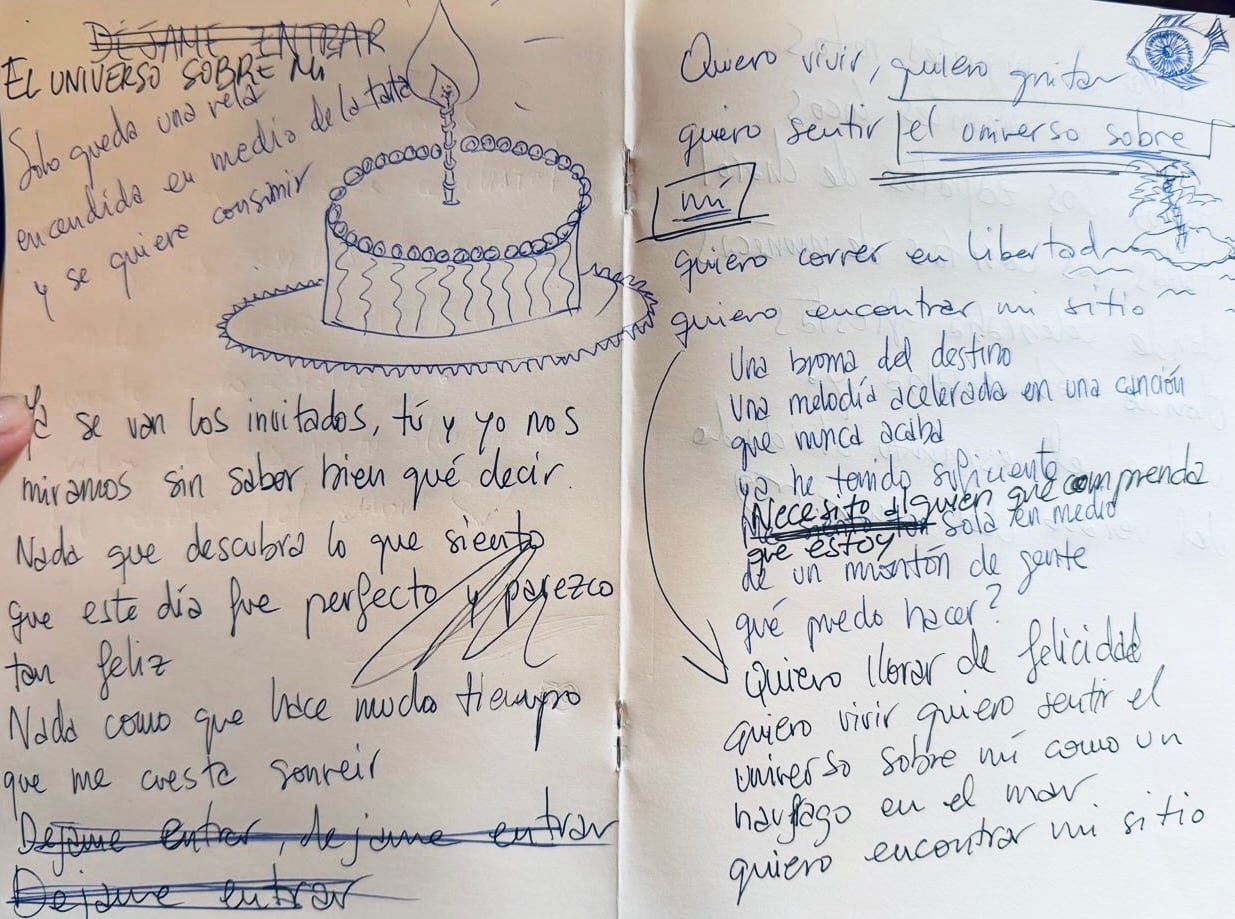 DÉJAME ENTRAR
EL UNIVERSO SOBRE MÍ
Solo queda una vela
encendida en medio de la tarta
y se quiere consumir
Ya se van los invitados, tú y yo nos
miramos sin saber bien qué decir.
Nada que descubra lo que siento
que este día fue perfecto y parezco
tan feliz
Nada como que hace mucho tiempo
que me cuesta sonreir
Dejame entrar, dejame entrar
Dejame entrar
Quiero vivir, quiero gritar
quiero sentir el universo sobre
mí
quiero correr en libertad
quiero encontrar mi sitio
Una broma del destino
Una melodía acelerada en una canción
que nunca acaba
ya he tenido suficiente
Necesito alguien que comprenda
que estoy sola en medio
de un montón de gente
qué puedo hacer?
Quiero llorar de felicidad
quiero vivir quiero sentir el
universo sobre mí como un
naufago en el mar
quiero encontrar mi sitio